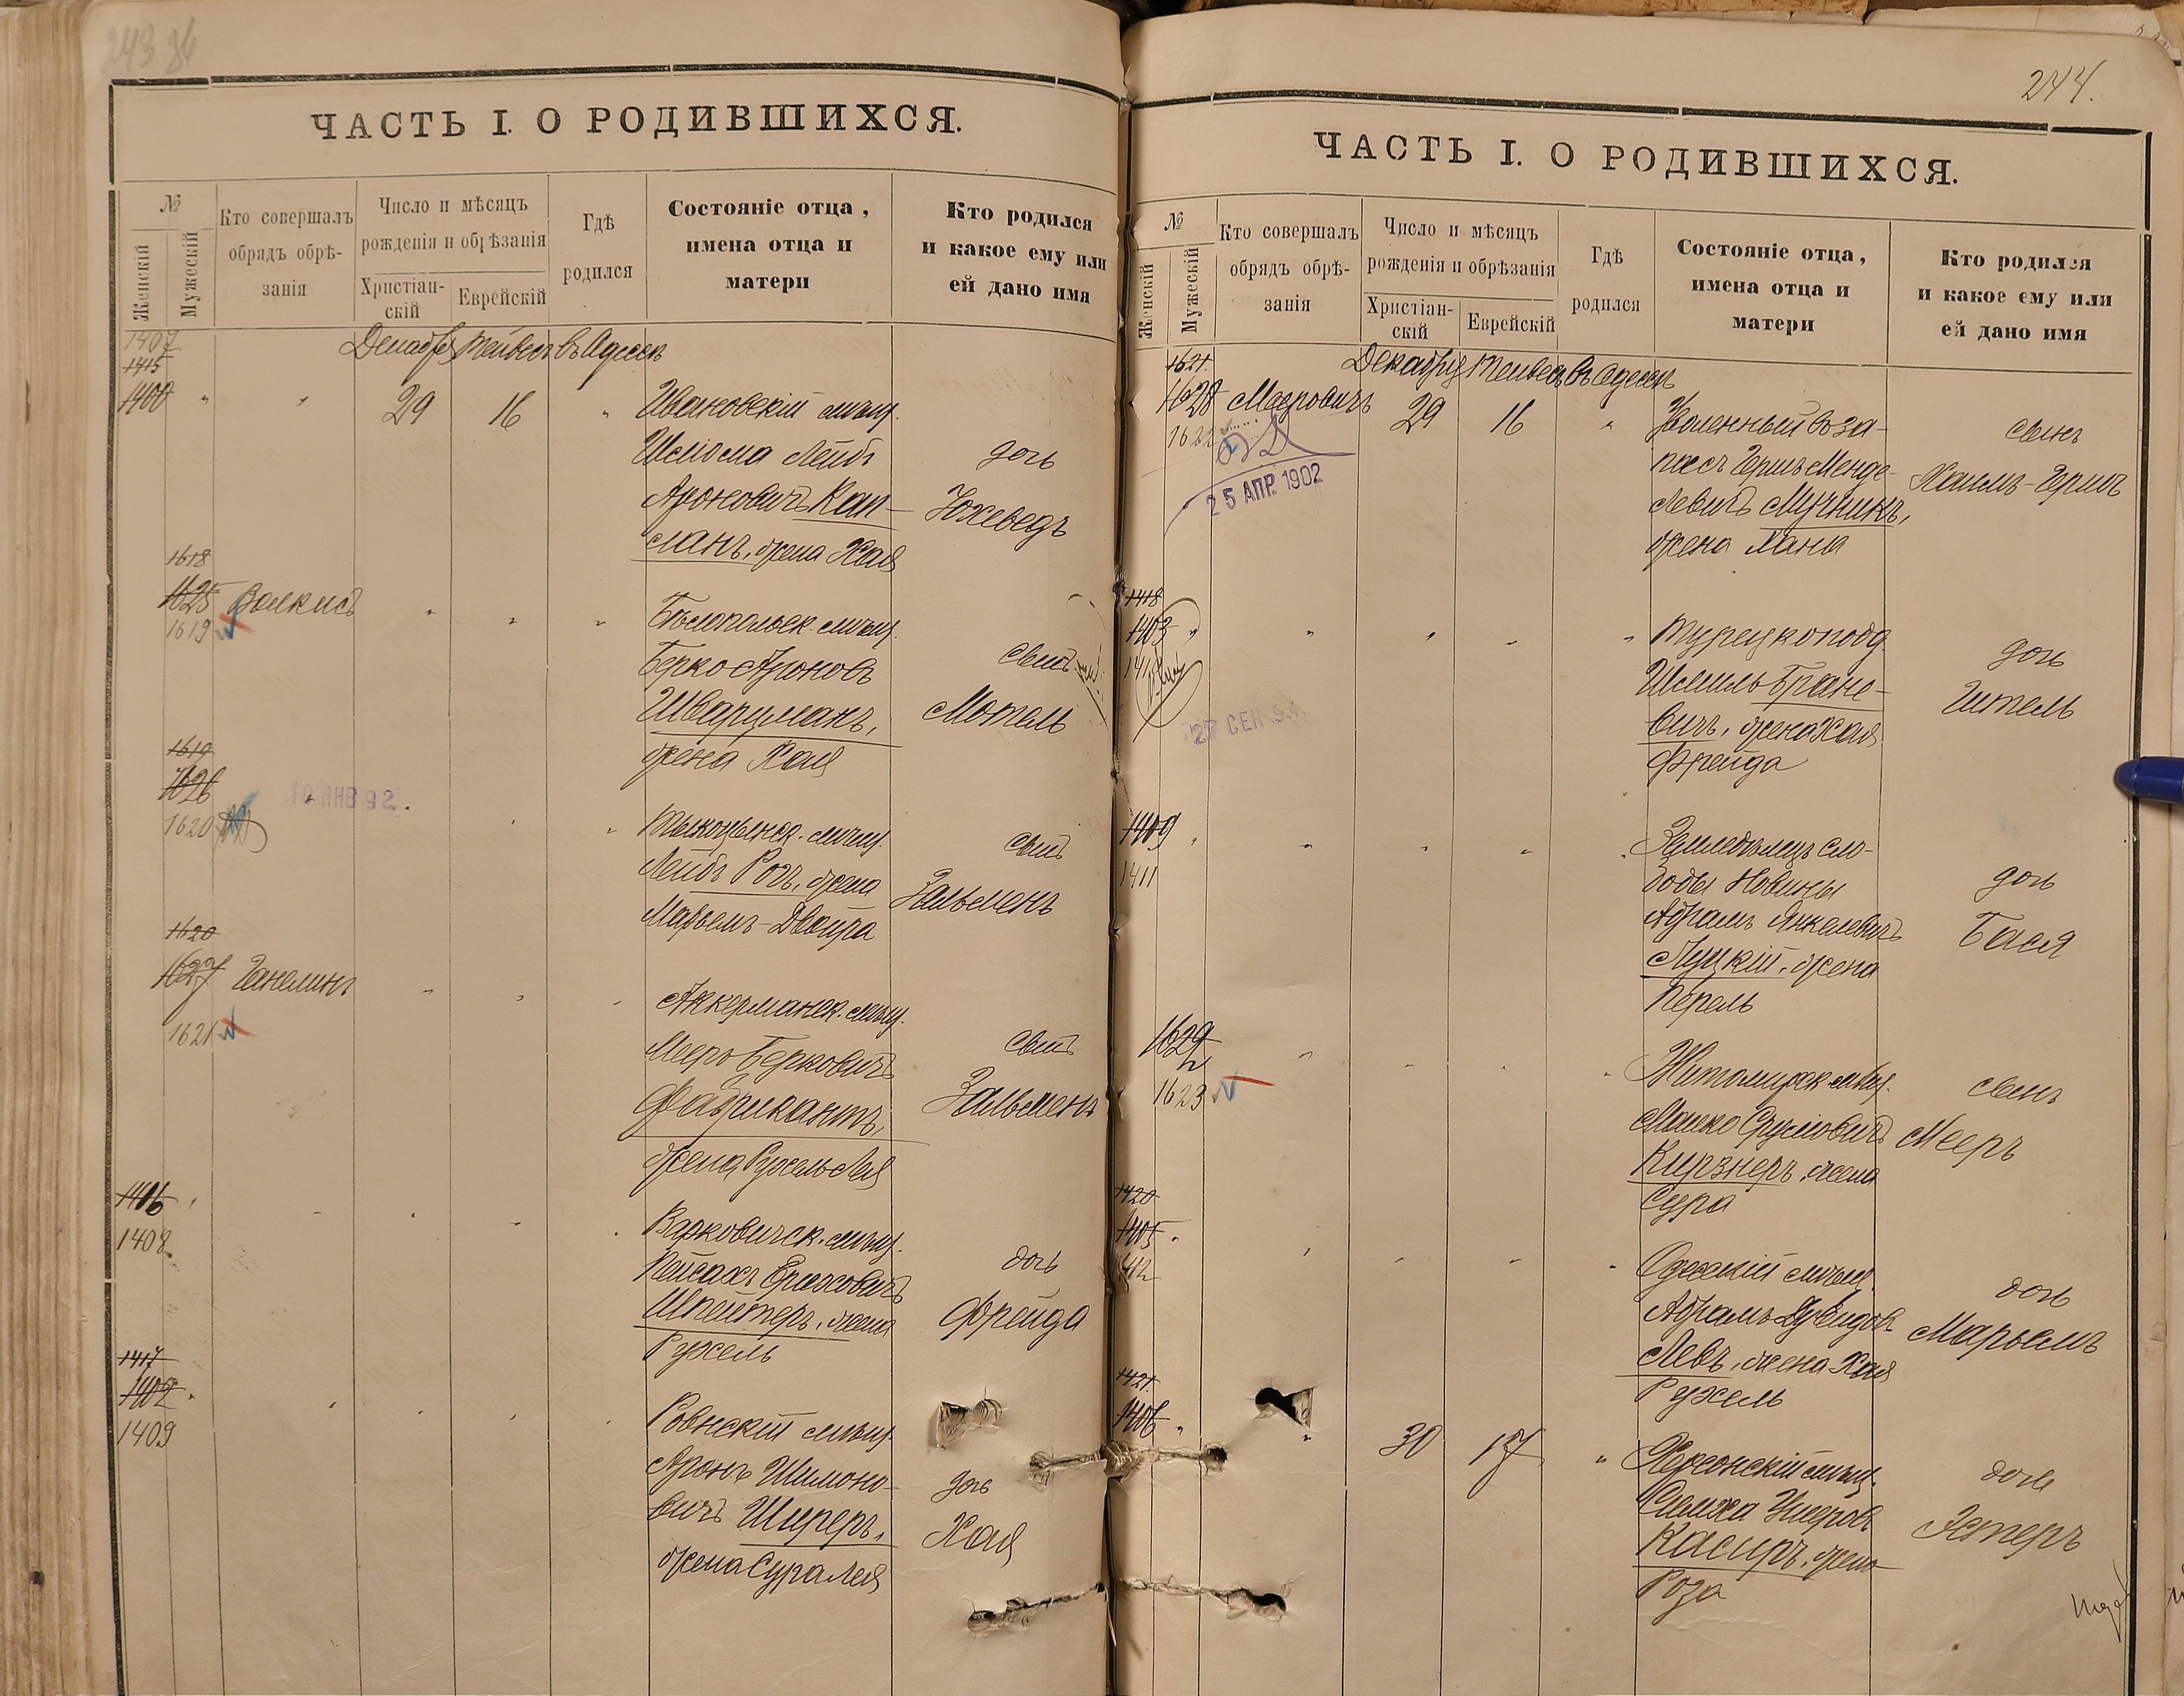 ЧАСТЬ I. О РОДИВШИХСЯ.
№
Женскій
Мужескій
Кто совершалъ
обрядъ обрѣ-
занія
Число и мѣсяцъ
рожденія и обрѣзанія
Христіан-
скій
Еврейскій
Гдѣ
родился
Состояніе отца,
имена отца и
матери
Кто родился
и какое ему или
ей дано имя
1407
Декабрь Тейвесъ въ Одессѣ
1415
1400
29
16
Ивановскій мѣщ.
Шліома Лейбъ
Ароновичъ Кап-
ланъ, жена Хая
дочь
Юхеведъ
1618
1625
1619
Волкисъ
Бѣлопольск. мѣщ.
Берко Ароновъ
Шварцманъ,
жена Хая
сынъ
Мотель
1619
1626
1620
10 ЯНВ 92.
Тыкоцинск. мѣщ.
Лейбъ Розъ, жена
Марьемъ-Двойра
сынъ
Зальменъ
1620
1627
1621
Ганелинъ
Аккерманск. мѣщ.
Мееръ Берковичъ
Фабрикантъ,
жена Рухель Лея
сынъ
Зальменъ
1416
1408
Варковичск. мѣщ.
Пейсахъ
Шпейтеръ, жена
Рухель
дочь
Фрейда
1417
1402
1409
Ровнскій мѣщ.
Аронъ Шимоно-
вичъ Шиферъ,
жена Сура Лея
дочь
Хая
244.
ЧАСТЬ I. О РОДИВШИХСЯ.
№
Женскій
Мужескій
Кто совершалъ
обрядъ обрѣ-
занія
Число и мѣсяцъ
рожденія и обрѣзанія
Христіан-
скій
Еврейскій
Гдѣ
родился
Состояніе отца,
имена отца и
матери
Кто родился
и какое ему или
ей дано имя
Декабрь Тейвесъ въ Одессѣ
1621
1628
1622
Мееровичъ
25 АПР. 1902
29
16
Уволенный въ за-
пасъ Гершъ Менде-
левичъ Мучникъ,
жена Хана
сынъ
Хаимъ-Гершъ
1418
1403
27 СЕН. 94.
Турецкоподд.
Шмиль Бране-
вичъ, жена Хая
Фрейда
дочь
Гитель
1411
Земледѣлецъ сло-
боды Новины
Абрамъ Янкелевичъ
Луцкій, жена
Перель
дочь
Бася
1629
1623
Житомирск. мѣщ.
Мошко Сруліовичъ
Кирзнеръ, жена
Сура
сынъ
Мееръ
1420
1405
1412
Одесскій мѣщ.
Абрамъ Дувидовъ
Левъ, жена Хая
Рухель
дочь
Марьемъ
1421
1406
30
17
Херсонскій мѣщ.
Симха Ушеровъ
Касиръ, жена
Роза
дочь
Эстеръ